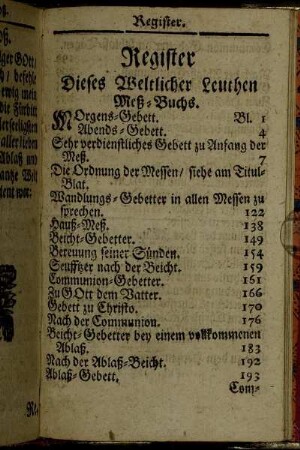 Register.
Register
Dieses Weltlicher Leuthen
Meß-Buchs.
MOrgens-Gebett. Bl. 1
Abends-Gebett. 4
Sehr verdienstliches Gebett zu Anfang der
Meß. 7
Die Ordnung der Messen / siehe am Titul-
Blat.
Wandlungs-Gebetter in allen Messen zu
sprechen. 122
Hauß-Meß. 138
Beicht-Gebetter. 149
Bereuung seiner Sünden. 154
Seufftzer nach der Beicht. 159
Communion-Gebetter. 161
Zu GOtt dem Vatter. 166
Gebett zu Christo. 170
Nach der Communion. 176
Beicht-Gebetter bey einem vollkommenen
Ablaß. 183
Nach der Ablaß-Beicht. 192
Ablaß-Gebett. 193
Com-